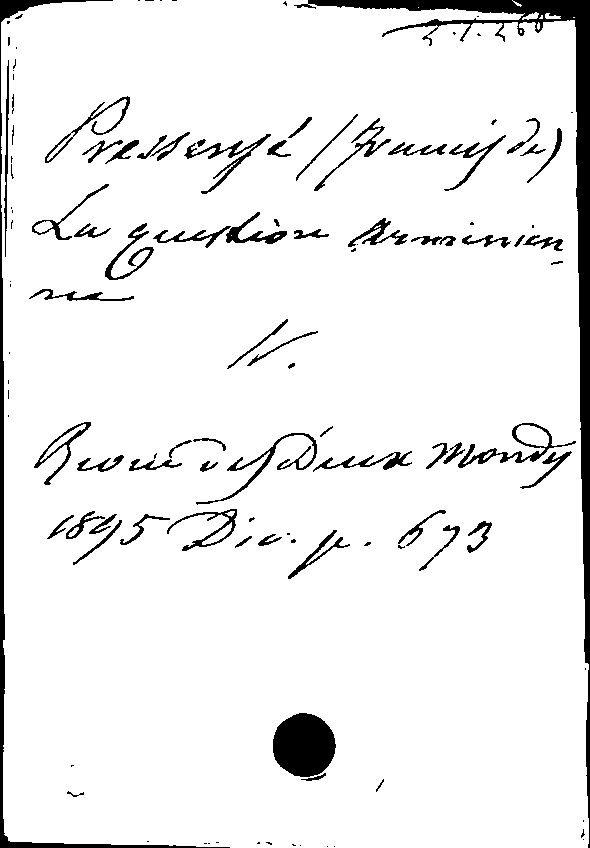 2.1.260
Pressensé (Francis de)
La question Arménien-
ne
V.
Revue des Deux Mondes
1895 Déc. p. 673